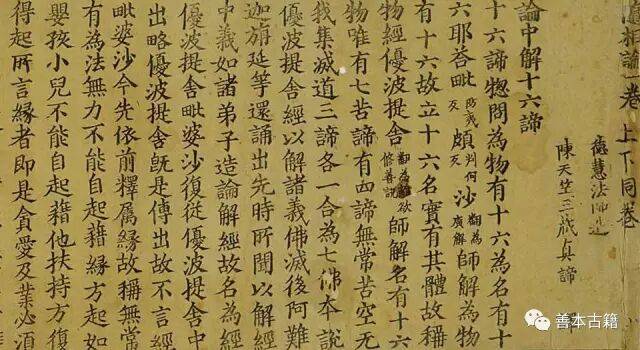 相論一卷 上下同卷
德慧法師造
陳天竺三藏真諦
論中解十六諦
十六諦惣問為物有十六為名有十
六耶荅毗防戈反頗判何反沙翻為廣解師解為物
有十六故立十六名實有其體故稱
物經優波提舍翻為欲修善說師解名有十六
物唯有七苦諦有四諦無常苦空无
我集滅道三諦各一合為七佛本說
優波提舍經以解諸義佛滅後阿難
迦旃延等還誦出先時所聞以解經
中義如諸弟子造論解經故名為經
優波提舍毗婆沙復從優波提舍中
出略優波提舍既是傳出故不言經
毗婆沙今先依前釋厲緣故稱無常
有為法無力不能自起藉緣方起如
嬰孩小兒不能自起藉他扶持方復
得起所言緣者即是貪愛及業必須
善本古籍